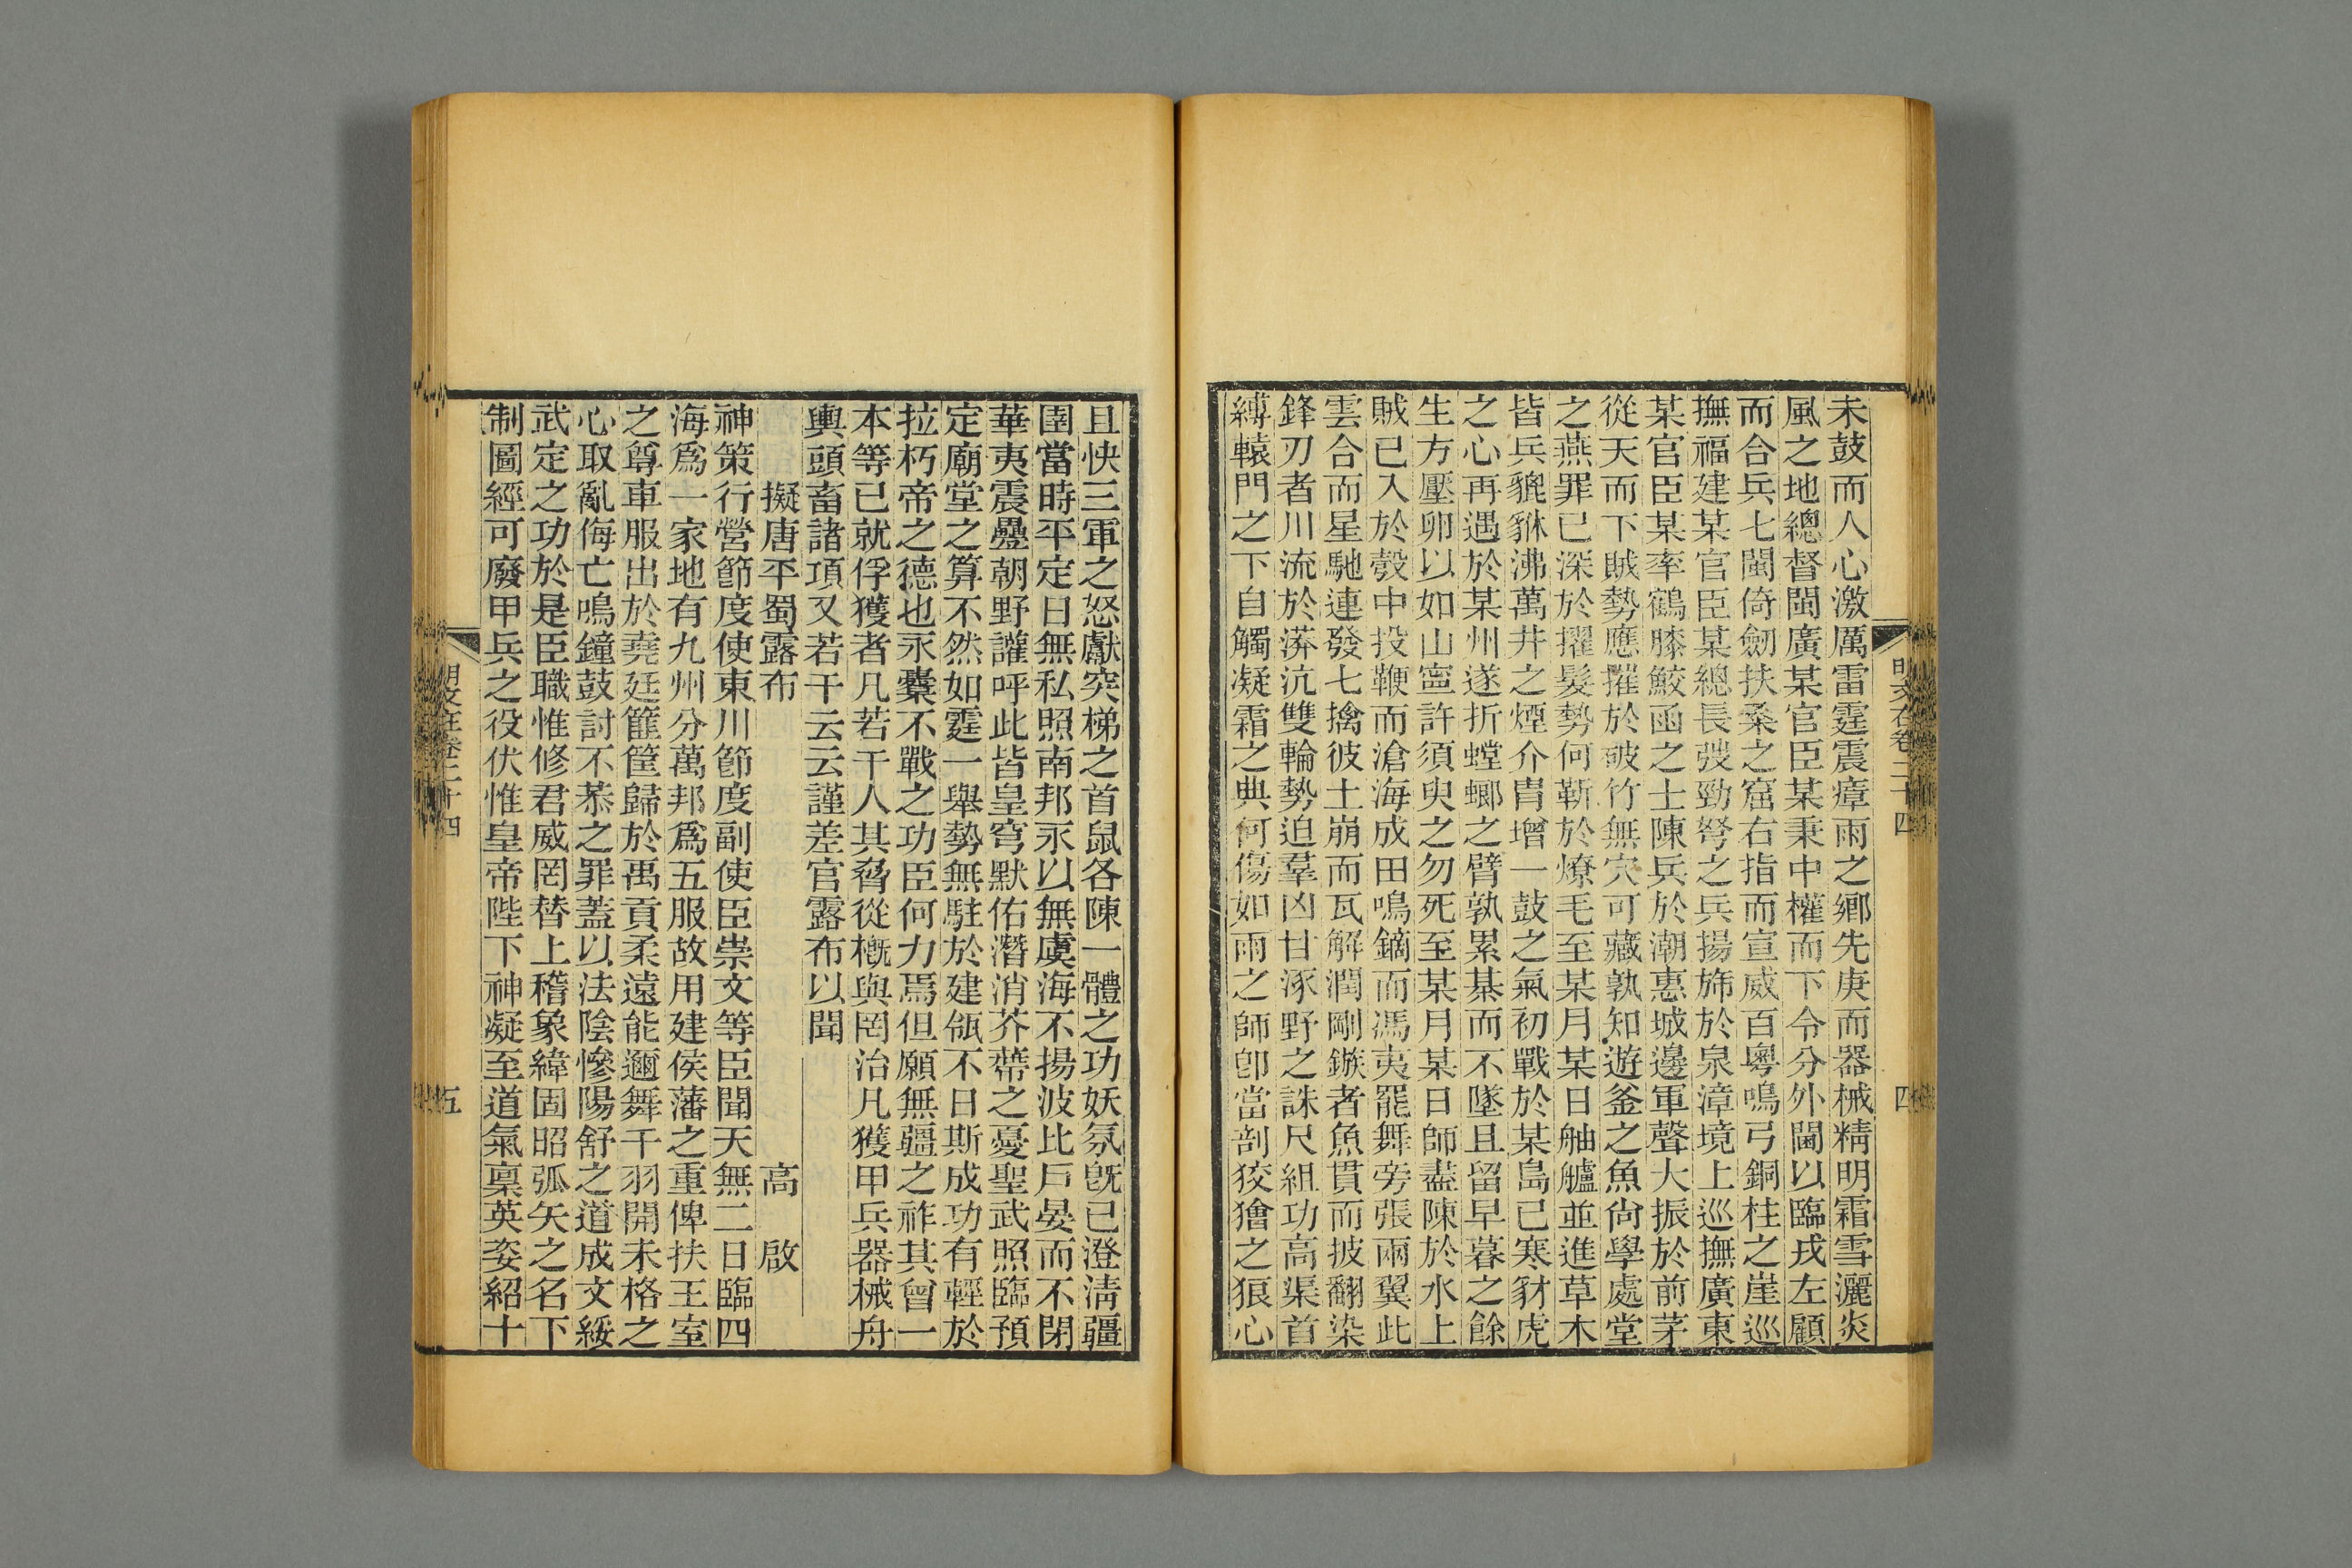 未鼓而人心激厲雷霆震瘴雨之鄕先庚而器械精明霜雪灑炎
風之地總督閩廣某官臣某秉中權而下令分外閫以臨戎左顧
而合兵七閩倚劒扶桑之窟右指而宣威百粵鳴弓銅柱之崖巡
撫福建某官臣某總長戟勁弩之兵揚斾於泉漳境上巡撫廣東
某官臣某率鶴膝鮫函之士陳兵於潮惠城邊軍聲大振於前茅
從天而下賊勢應摧於破竹無穴可藏孰知遊釜之魚尙學處堂
之燕罪已深於擢髮勢何靳於燎毛至某月某日舳艫並進草木
皆兵貔貅沸萬井之煙介胄增一鼓之氣初戰於某島已寒豺虎
之心再遇於某州遂折螳螂之臂孰累棊而不墜且留早暮之餘
生方壓卵以如山寧許須臾之勿死至某月某日師盡陳於水上
賊已入於彀中投鞭而滄海成田鳴鏑而馮夷罷舞旁張兩翼此
雲合而星馳連發七擒彼土崩而瓦解潤剛鏃者魚貫而披翻染
鋒刃者川流於漭沆雙輪勢迫羣凶甘涿野之誅尺組功高渠首
縛轅門之下自觸凝霜之典何傷如雨之師卽當剖狡獪之狼心
明文在卷二十四
四
且快三軍之怒獻突梯之首鼠各陳一體之功妖氛旣已澄淸疆
圉當時平定日無私照南邦永以無虞海不揚波比戶晏而不閉
華夷震疊朝野讙呼此皆皇穹默佑潛消芥蔕之憂聖武照臨預
定廟堂之算不然如霆一舉勢無駐於建瓴不日斯成功有輕於
拉朽帝之德也永櫜不戰之功臣何力焉但願無疆之祚其曾一
本等已就俘獲者凡若干人其脅從槪與罔治凡獲甲兵器械舟
輿頭畜諸項又若干云云謹差官露布以聞
擬唐平蜀露布　高啟
神策行營節度使東川節度副使臣崇文等臣聞天無二日臨四
海爲一家地有九州分萬邦爲五服故用建侯藩之重俾扶王室
之尊車服出於堯廷篚筐歸於禹貢柔遠能邇舞干羽開未格之
心取亂侮亡鳴鐘鼓討不恭之罪蓋以法陰慘陽舒之道成文綏
武定之功於是臣職惟修君威罔替上稽象緯固昭弧矢之名下
制圖經可廢甲兵之役伏惟皇帝陛下神凝至道氣稟英姿紹十
明文在卷二十四
五